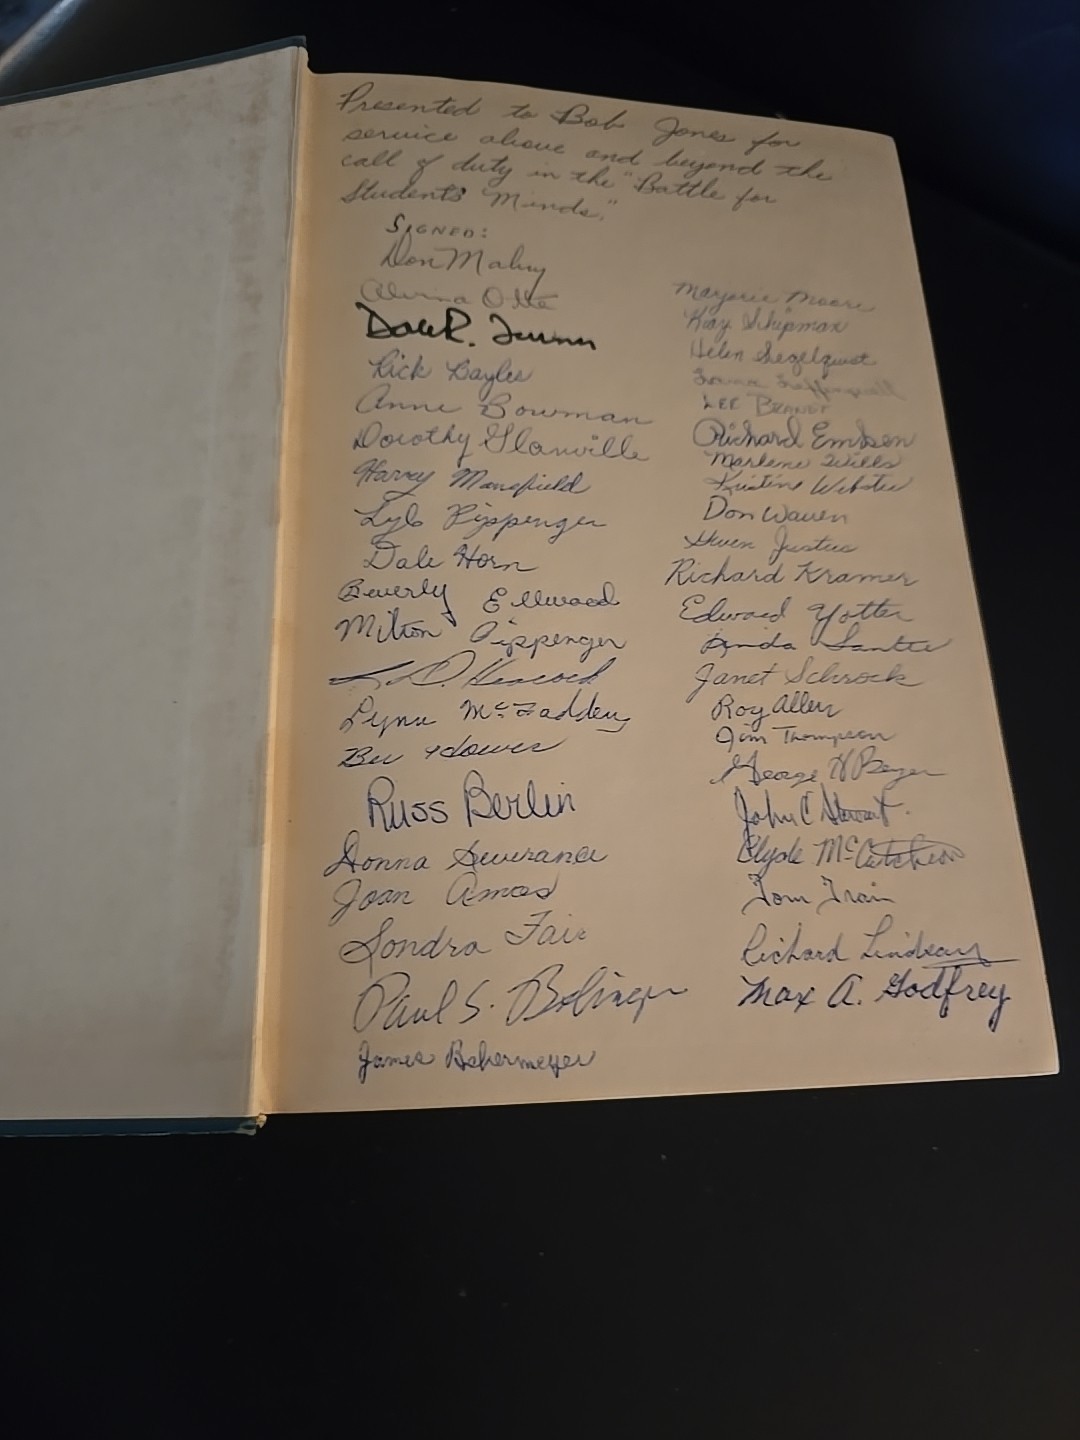 Presented to Bob Jones for
service above and beyond the
call of duty in the "Battle for
Students' Minds."
SIGNED:
Don Maluy
Alvina Otte
Dale R.
Rick Bayles
Anne Bowman
Dorothy Glanville
Harvey Mansfield
Lyle Pippenger
Dale Horn
Beverly Ellwood
Milton Pippenger
L. D. Heacock
Lynn McFadden
Bev Howes
Russ Berlin
Donna Severance
Joan Amos
Sondra Fair
Paul S. Bolinger
James Bohermeyer
Marjorie Moore
Kay Shipman
Helen Segelquist
Leffingwell
LEE BRANDT
Richard Emksen
Marlene Wills
Kristine Webster
Don Warren
Steven Justus
Richard Kramer
Edward Yotter
Linda Santee
Janet Schrock
Roy Allen
Jim Thompson
George W Beyer
John C Stewart
Clyde McCutcheon
Tom Train
Richard Lindsay
Max A. Godfrey